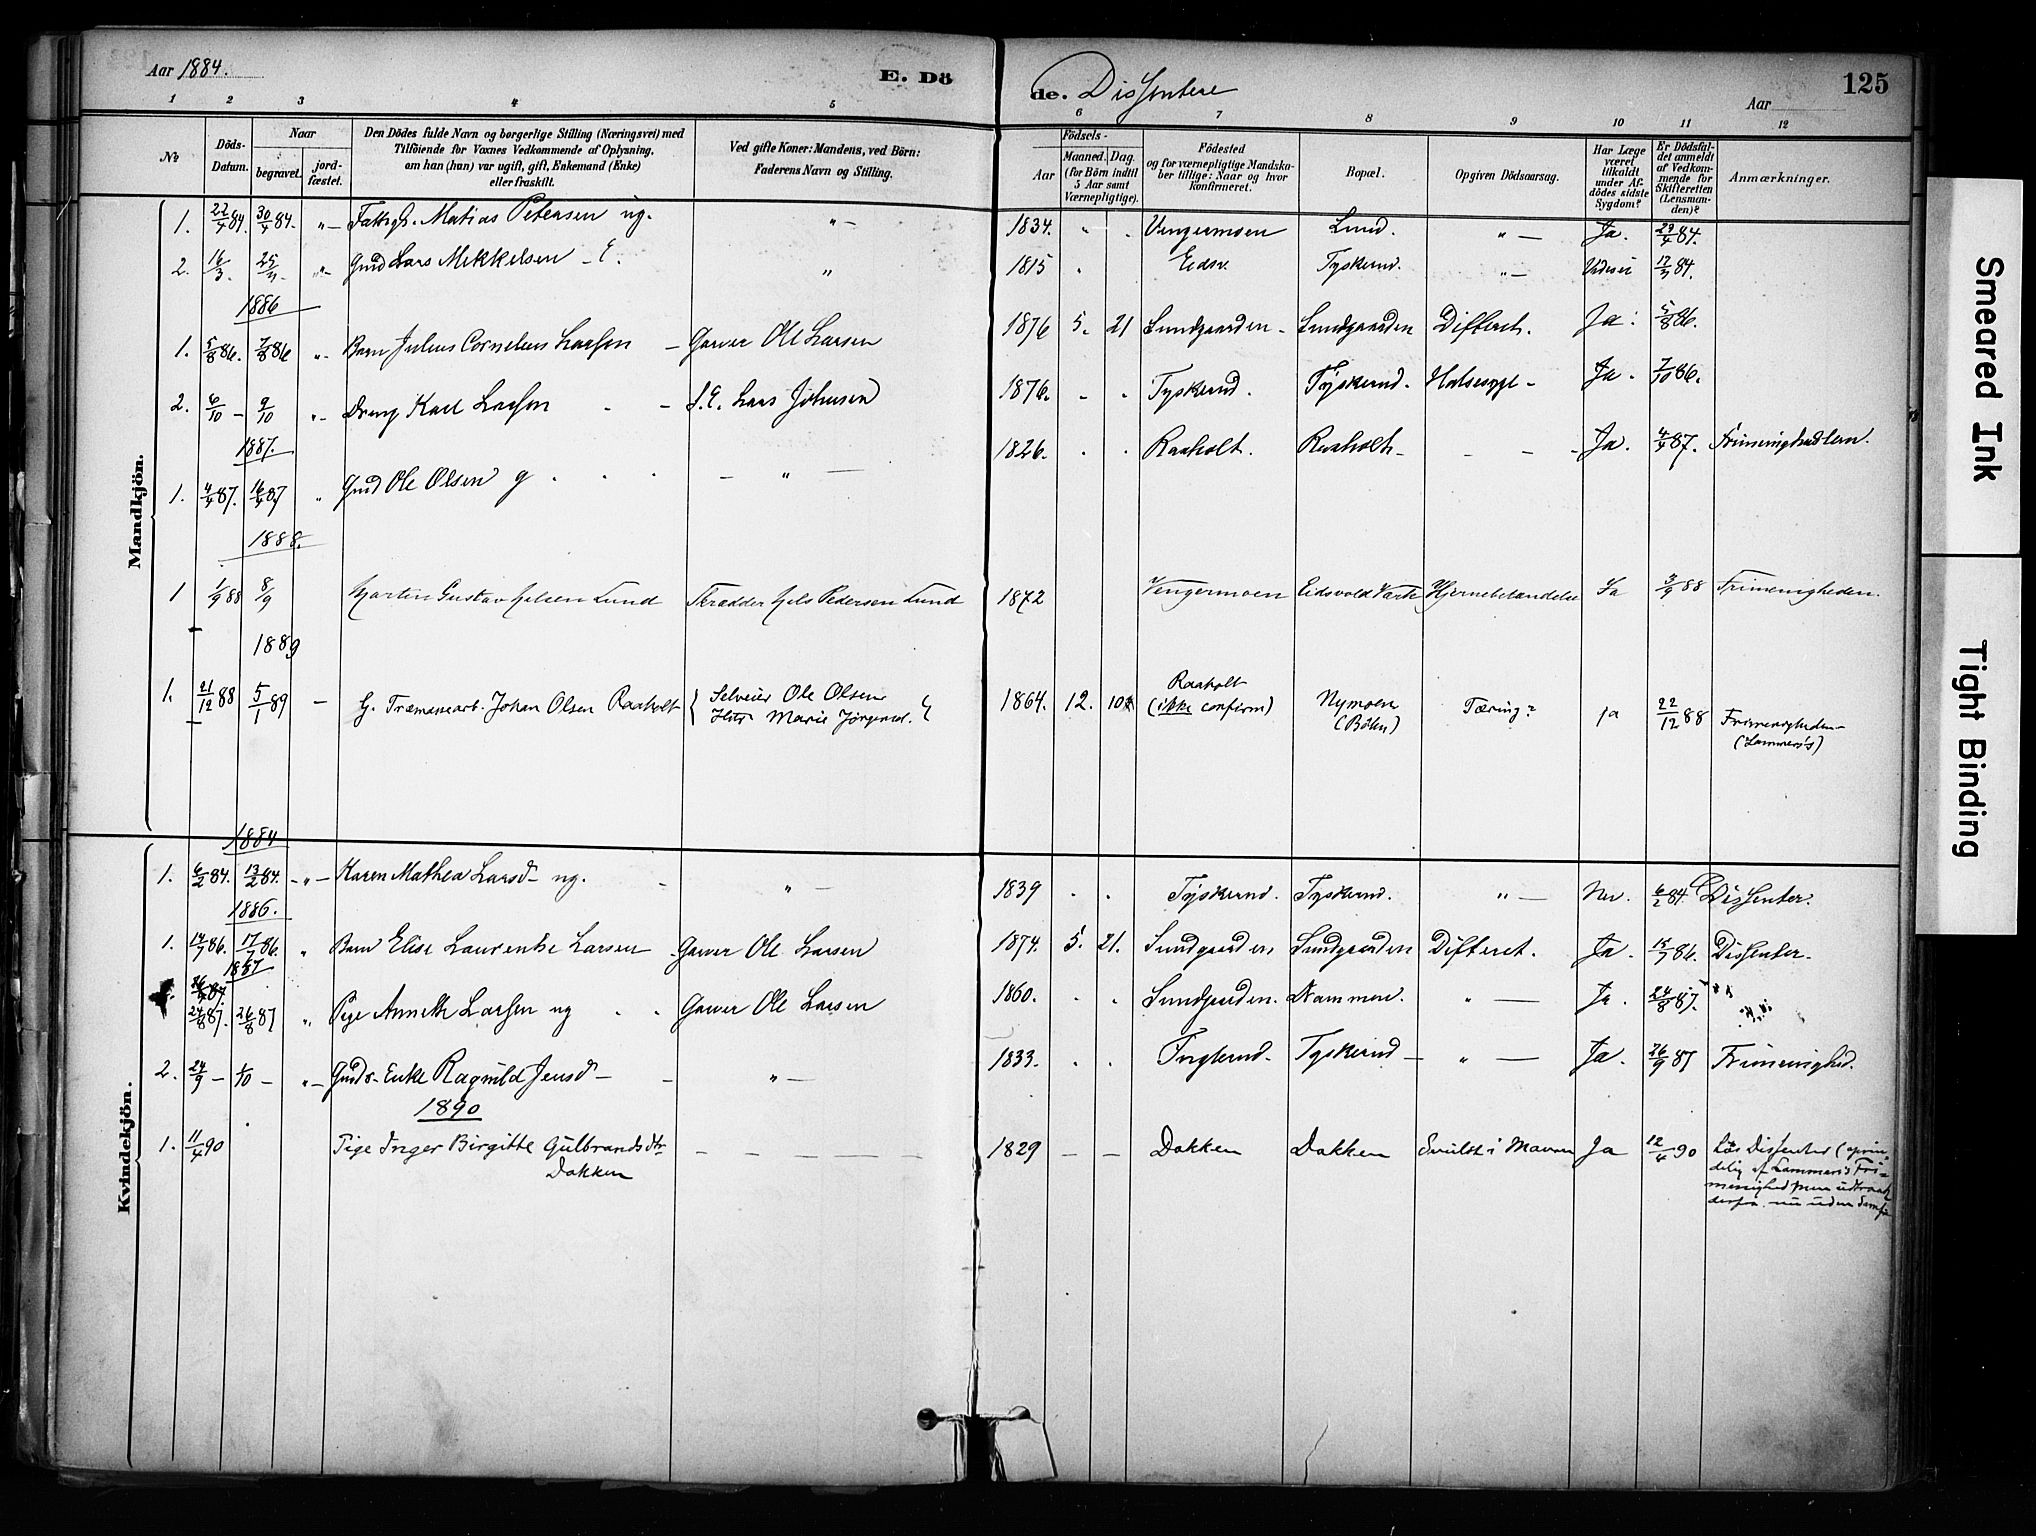 Aar 1884.
E. Dö
de. Dissentere
Aar
125
1 2 3 4 5 6 7 8 9 10 11 12
No
Döds-Datum.
Naar
begravet.
jord-fæstet.
Den Dödes fulde Navn og borgerlige Stilling (Næringsvei) med
Tilföiende for Voxnes Vedkommende af Oplysning,
om han (hun) var ugift, gift, Enkemand (Enke)
eller fraskilt.
Ved gifte Koner: Mandens, ved Börn:
Faderens Navn og Stilling.
Födsels-
Aar
Maaned. Dag.
(for Börn indtil
5 Aar samt
Værnepligtige).
Födested
og for værnepligtige Mandska-
ber tillige: Naar og hvor
konfirmeret.
Bopæl.
Opgiven Dödsaarsag.
Har Læge
været
tilkaldt
under Af-
dödes sidste
Sygdom?
Er Dödsfal-
det anmeldt
af Vedkom-
mende for
Skifteretten
(Lensman-
den)?
Anmærkninger.
Mandkjön.
1. 22/4 84. 30/4 84. " Matias Petersen ug. " 1834. Vengermoen Lund. " Ja. 29/4 84.
2. 16/3. " Gmd Lars Mekkelsen E. " 1815 Eidsv. Tyskerud. " 17/3 84.
1886
1. 5/8 86. 7/8 86 " Barn Julius Cornelius Larsen Garver Ole Larsen 1876 5. 21 Sundgaarden Sundgaarden Difterit. Ja. 5/8 86.
2. 6/10 9/10 " Dreng Karl Larsen S.E. Lars Johnsen 1876. Tyskerud. Tyskerud. Halsesyge Ja. 7/10 86.
1887.
1. 4/4 87. 16/4 87 " Gmd Ole Olsen g " 1826. Raaholt. Raaholt Ja. 4/4 87.
1888.
1 1/9 88 8/9 Martin Gustav Nelsen Lund Skrædder Nels Pedersen Lund 1872 Vengermoen Eidsvold Værk Hjernebetændelse Ja 3/9 88 Frimenigheden.
1889
1. 21/12 88 5/1 89 – G. Johan Olsen Raaholt { Selveier Ole Olsen
Marie Jørgensd. } 1864. 12. 10 Raaholt
(ikke confirm) Nymoen
(Bølen) Tæring? ja 22/12 88 Frimenigheden
(Lammers's)
Kvindekjön.
1884
1. 6/2 84. 13/2 84. " Karen Mathea Larsd. ug. " 1839 Tyskerud. Tyskerud. " Nei. 6/2 84. Dissenter.
1886.
1. 14/7 86. 17/7 86. " Barn Elise Laurentse Larsen Garver Ole Larsen 1874. 5. 21. Sundgaarden Sundgaarden Difterit. Ja. 15/7 86. Dissenter.
1887
24/8 87. 26/8 87 " Pige Annette Larsen ug Garver Ole Larsen 1860. Sundgaarden. " Ja. 24/8 87.
2. 24/9 1/10 " Gmds. Enke Ragnild Jensd. " 1833. Tyskerud " Ja. 26/9 87 Frimenighed.
1890
1. 11/4 90 Pige Inger Birgitte Gulbrandsdtr
Dokken 1829 Dokken Dokken Svulst i Maven Ja 12/4 90 Løs Dissenter (oprin-
delig af Lammers's Fri-
menighed men udtraadt
derfra nu uden
Smeared Ink
Tight Binding